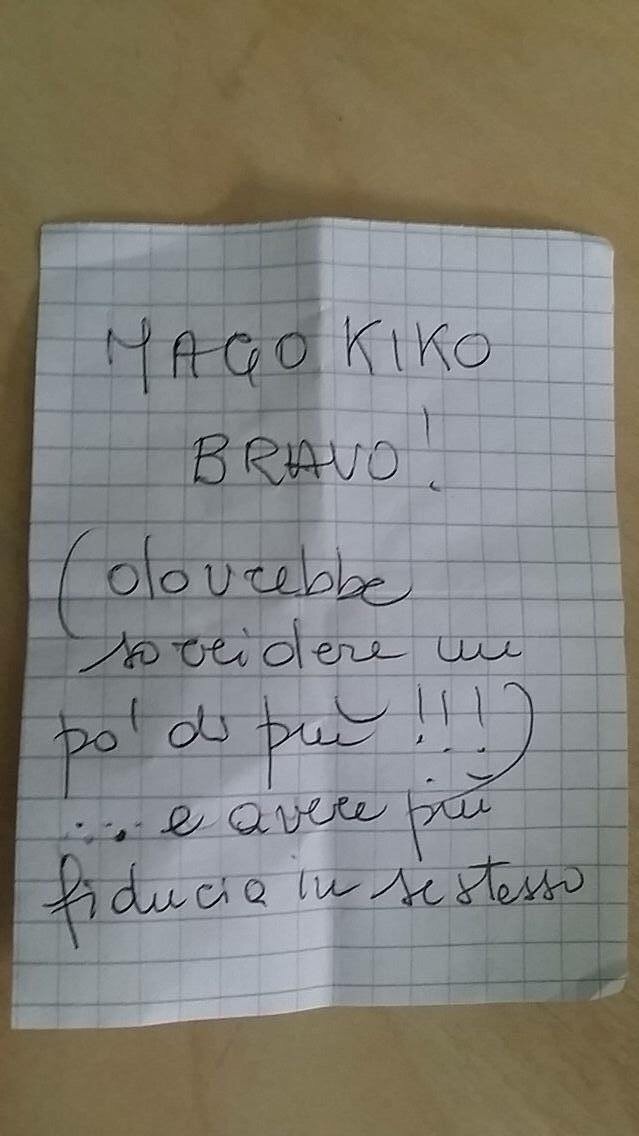 MAGO KIKO
BRAVO!
(dovrebbe
sorridere un
po' di più!!!)
... e avere più
fiducia in se stesso